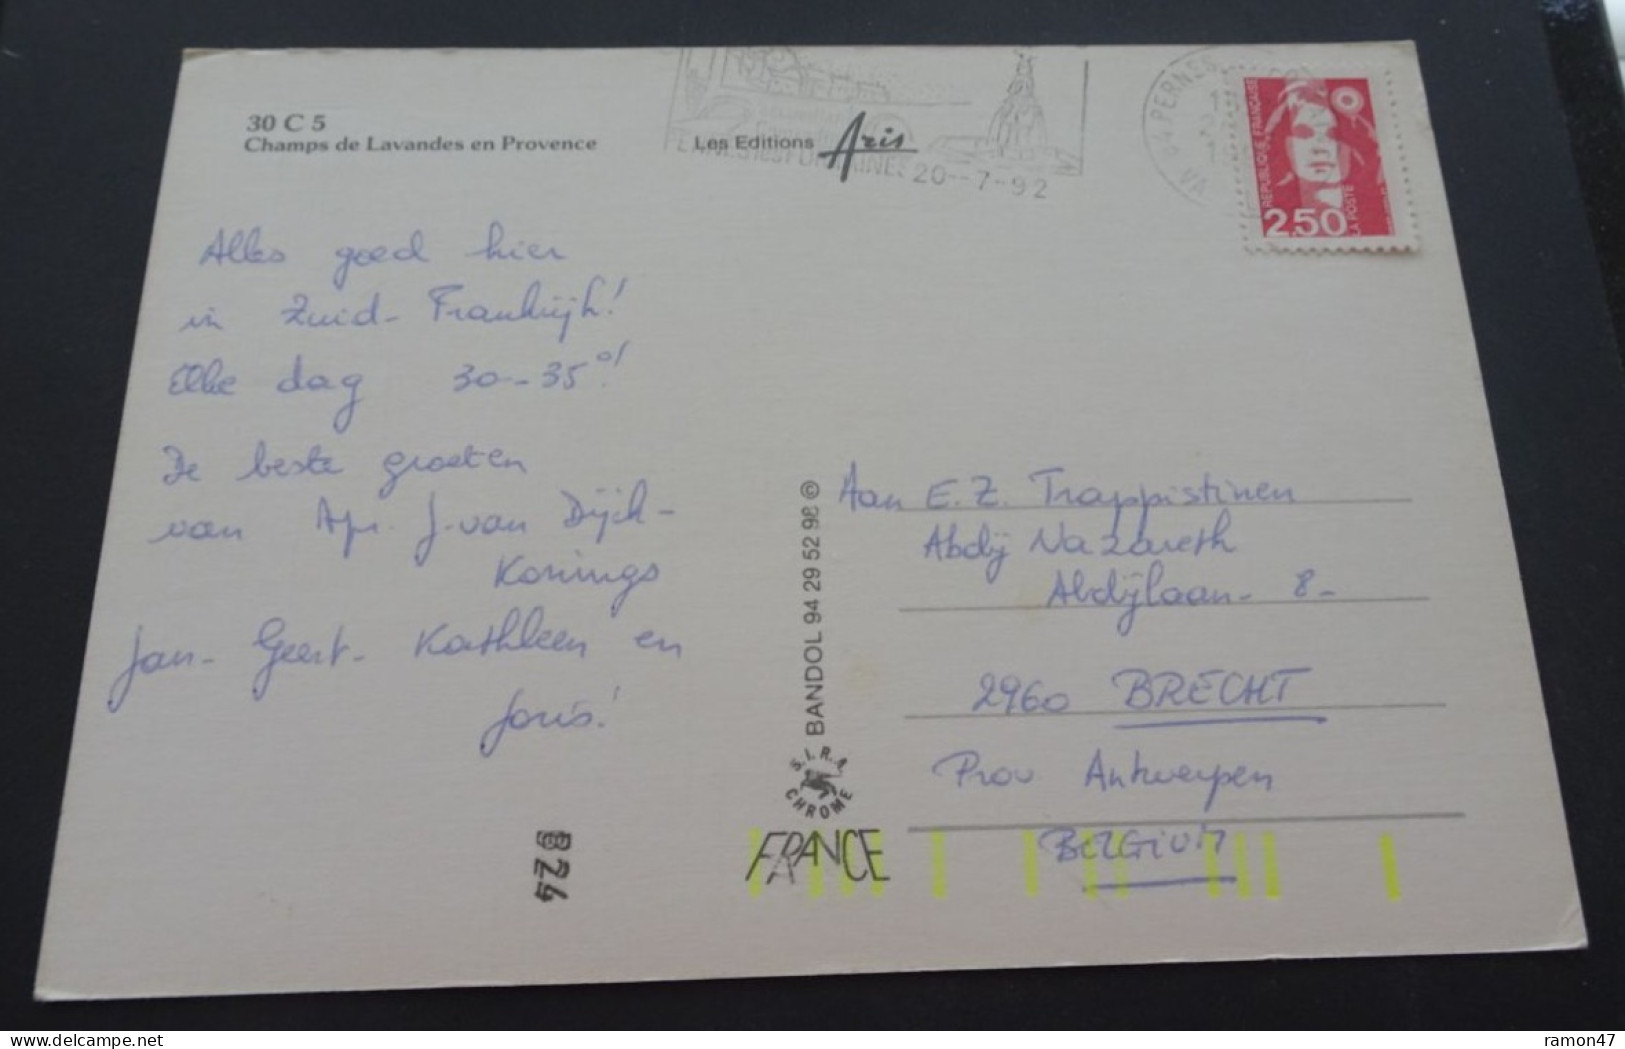 30 C 5
Champs de Lavandes en Provence
Les Editions Aris
20--7-92
84 PERNES
VA
REPUBLIQUE FRANÇAISE
2,50
LA POSTE
Alles goed hier
in Zuid-Frankrijk!
Elke dag 30-35°!
De beste groeten
van Apr. J. van Dijck-
Konings
Jan- Geert- Kathleen en
Joris!
BANDOL 94 29 52 98 ©
S.I.R.A.
CHROME
FRANCE
824
Aan E.Z. Trappistinen
Abdij Nazareth
Abdijlaan- 8-
2960 BRECHT
Prov Antwerpen
BELGIUM
ramon47